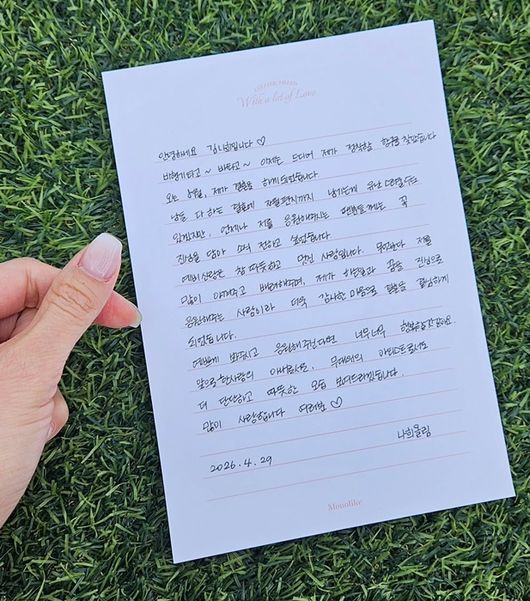 With a lot of Love
안녕하세요 김나희입니다 ♡
비행기타고~ 버스타고~ 이제는 드디어 제가 정착할 항구를 찾았습니다
오는 가을, 제가 결혼을 하게 되었습니다
남들 다 하는 결혼에 자필편지까지 남기는게 유난 스러울수도
있겠지만, 언제나 저를 응원해주시는 팬분들께는 꼭
진심을 담아 소식 전하고 싶었습니다
예비신랑은 참 따뜻하고 멋진 사람입니다. 무엇보다 저를
많이 아껴주고 배려해주며, 제가 하는일과 꿈을 진심으로
응원해주는 사람이라 더욱 감사한 마음으로 결혼을 결심하게
되었습니다.
예쁘게 봐주시고 응원해주신다면 너무너무 행복할것같아요.
앞으로 한사람의 아내로서도, 무대위의 아티스트로서도
더 단단하고 따뜻한 모습 보여드리겠습니다
많이 사랑합니다 여러분 ♡
나희올림
2026. 4. 29
Monolike